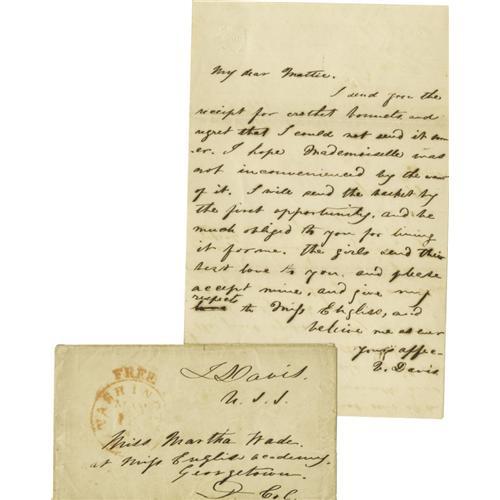 My dear Mattie.
I send you the
receipt for crochet bonnets and
regret that I could not send it soon
er. I hope Mademoiselle was
not inconvenienced by the want
of it. I will send the basket by
the first opportunity, and be
much obliged to you for lining
it for me. The girls send their
best love to you, and please
accept mine, and give my
respects
to Miss English, and
believe me as ever
yours affec-
V. Davis
FREE
WASHING
J Davis.
U. S. S.
Miss Martha Wade.
at Miss English academy.
Georgetown.
D. Col.